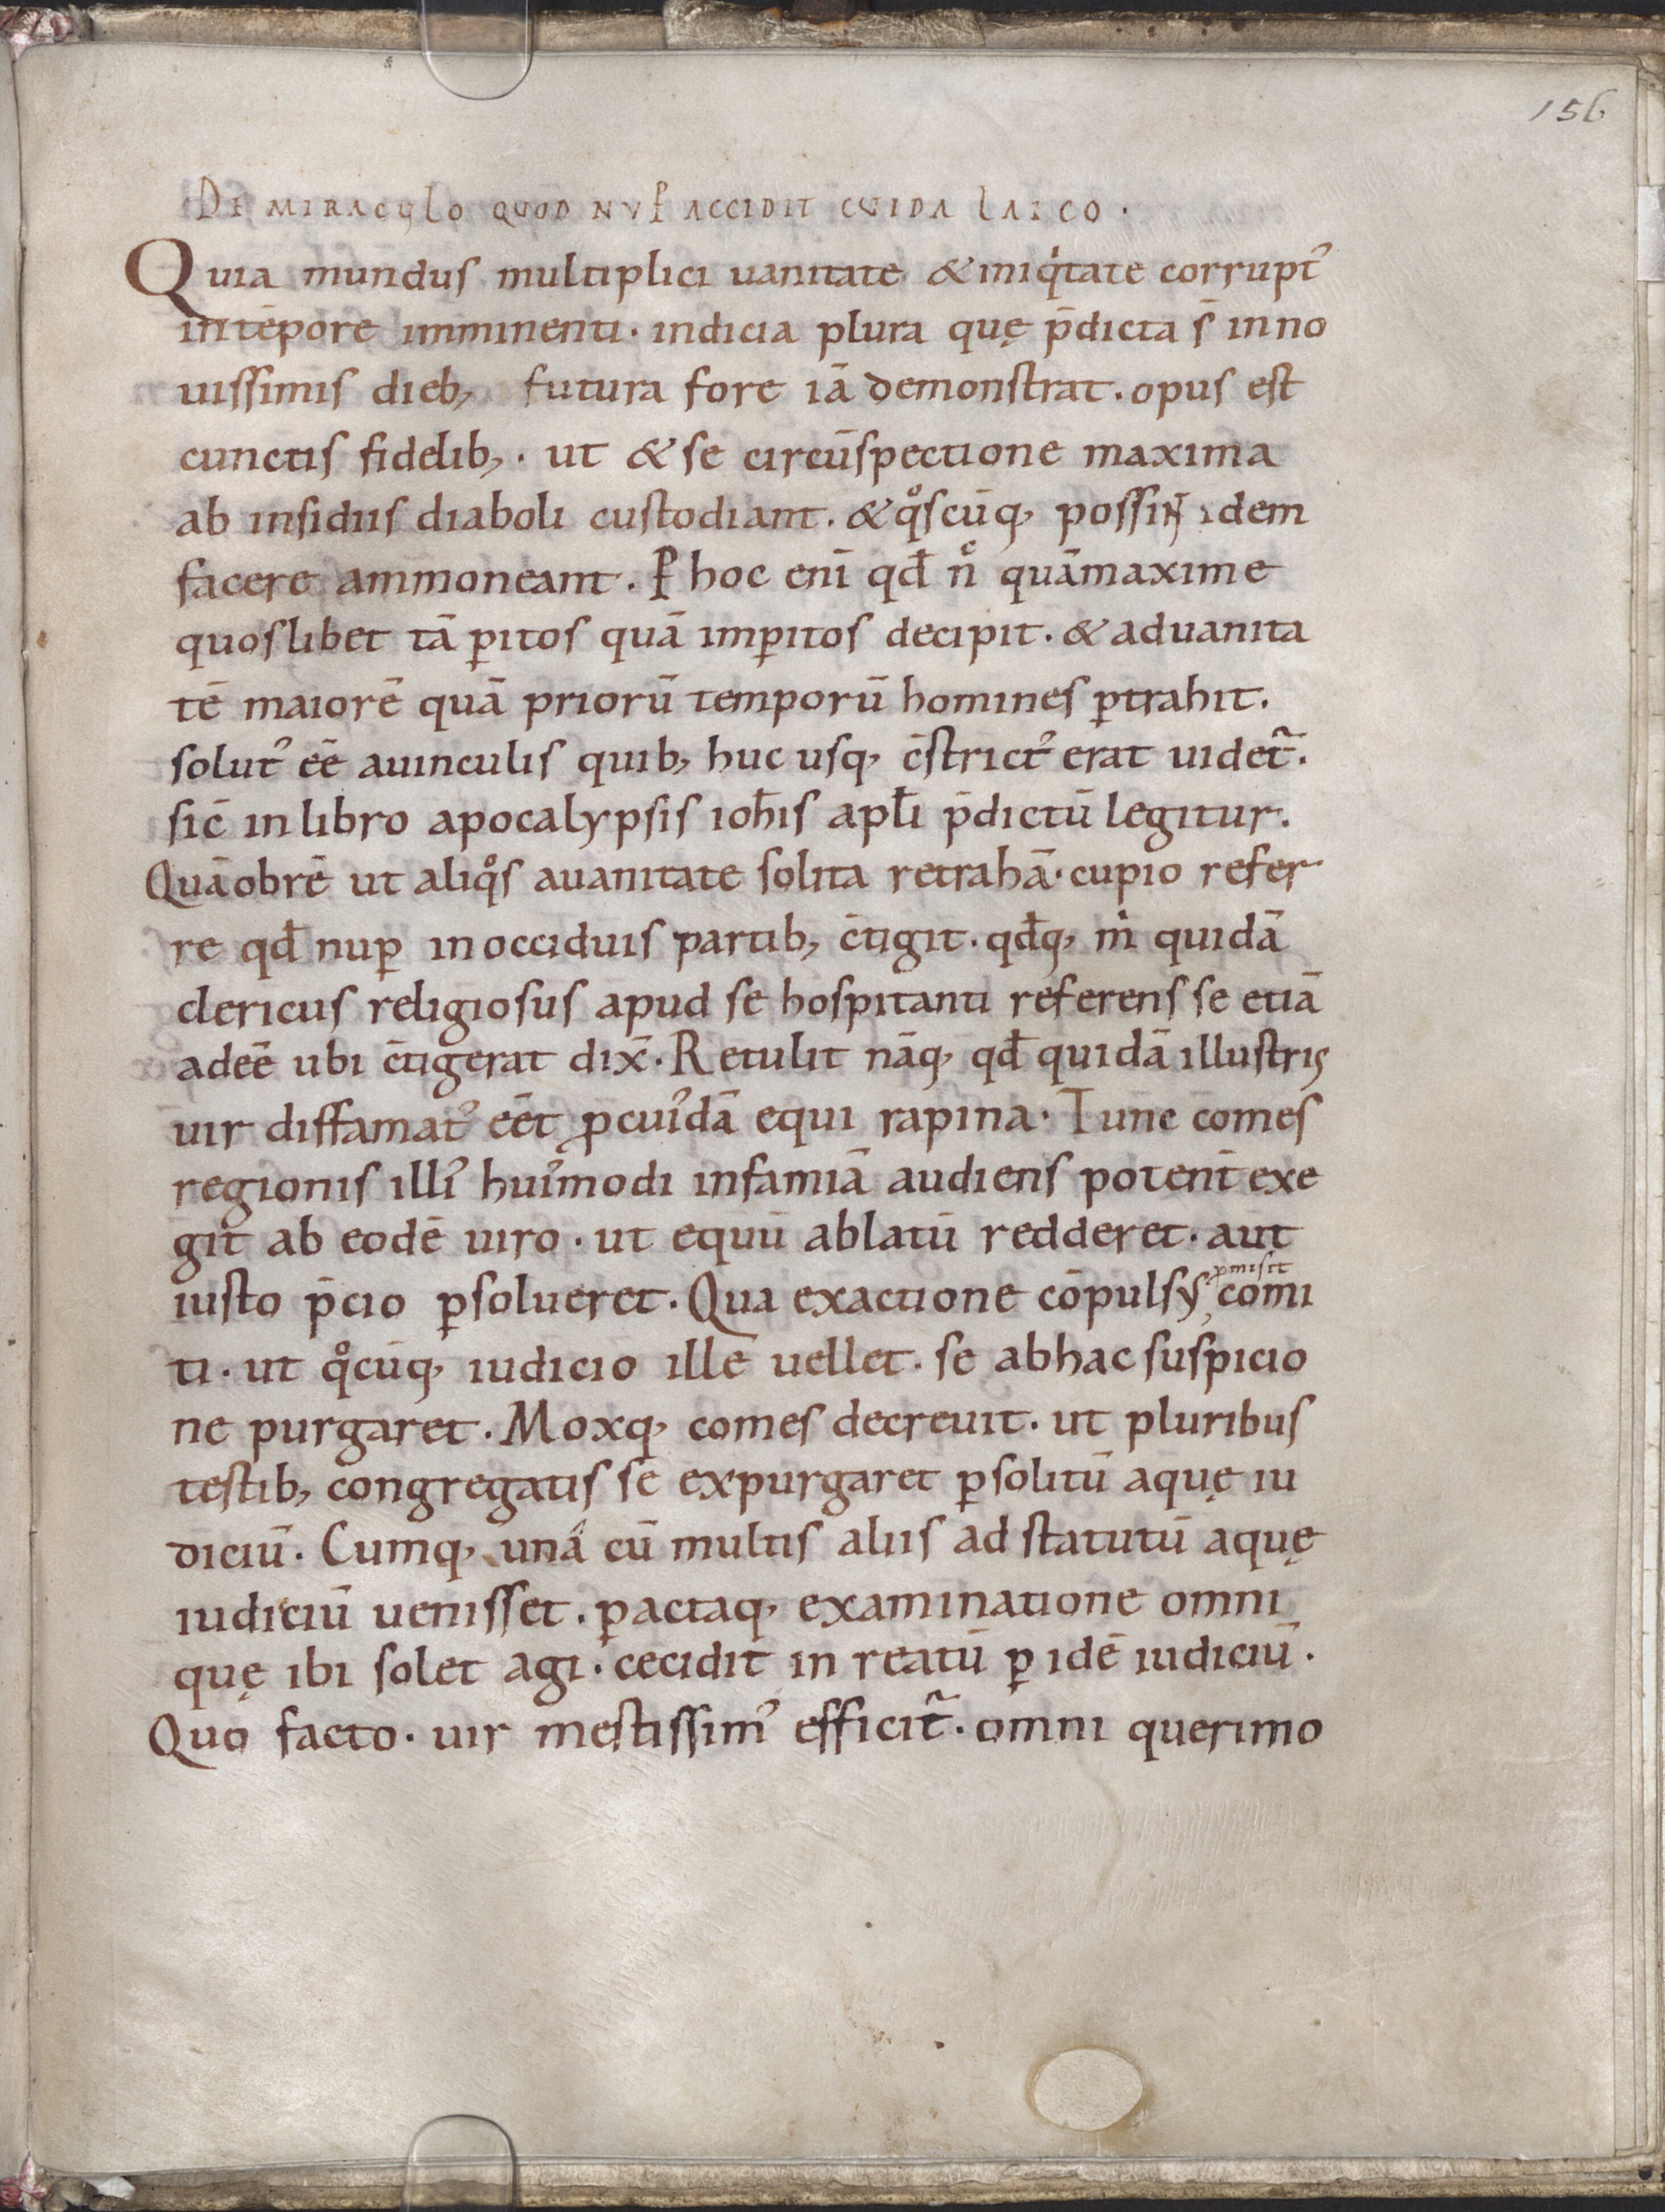 156
DE MIRACULO QUOD NUP̲ ACCIDIT CUIDA LAICO ·
Quia mundus multiplici uanitate & iniq̍tate corrupt᾿
in tēpore imminenti · indicia plura quę p̄dicta s̄ in no
uissimis dieb; futura fore iā demonstrat · opus est
cunctis fidelib; · ut & se circūspectione maxima
ab insidiis diaboli custodiant · & qͦscūq; possint idem
facere ammoneant · P̲ hoc enī qd̄ nͨ quāmaxime
quoslibet tā p̲itos quā imp̲itos decipit · & ad uanita
tē maiorē quā priorū temporū homines p̲trahit ·
solut᾿ eē a uinculis quib; huc usq; c̄strict᾿ erat uidet̃ ·
sic̄ in libro apocalypsis ioh̄is apl̄i p̄dictū legitur ·
Quāobrē ut aliqͦs a uanitate solita retrahā · cupio refer
re qd̄ nup̲ in occiduis partib; c̄tigit · qd̄q; m̍ quidā
clericus religiosus apud se hospitanti referens se etiā
adeē ubi c̄tigerat dix̄ · Retulit nāq; qd̄ quidā illustris
uir diffamat᾿ eēt ꝓ cui᾿dā equi rapina · Tunc comes
regionis illi᾿ hui᾿modi infamiā audiens potent̄ exe
git ab eodē uiro · ut equū ablatū redderet · aut
iusto p̄cio p̲solueret · Qua exactione cōpulsus, ꝓmisit comi
ti · ut qͦcūq; iudicio ille uellet · se ab hac suspicio
ne purgaret · Moxq; comes decreuit · ut pluribus
testib; congregatis se expurgaret p̲ solitū aquę iu
diciū · Cumq; unā cū multis aliis ad statutū aquę
iudiciū uenisset · p̲actaq; examinatione omni
quę ibi solet agi · cecidit in reatū p̲ idē iudiciū ·
Quo facto · uir mestissim᾿ efficit̃ · omni querimo